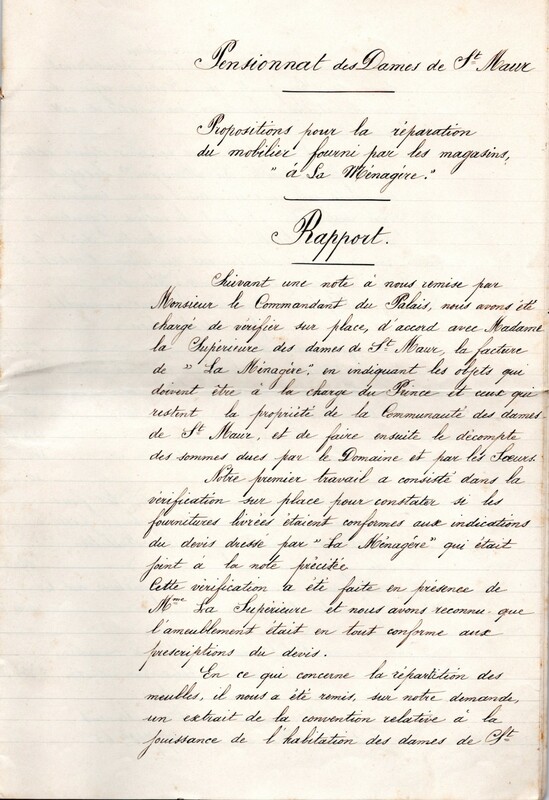 Pensionnat des Dames de St Maur
Propositions pour la réparation
du mobilier fourni par les magasins,
" à La Ménagère."
Rapport.
Suivant une note à nous remise par
Monsieur le Commandant du Palais, nous avons été
chargé de vérifier sur place, d'accord avec Madame
la Supérieure des dames de St Maur, la facture
de " La Ménagère", en indiquant les objets qui
doivent être à la charge du Prince et ceux qui
restent la propriété de la Communauté des dames
de St Maur, et de faire ensuite le décompte
des sommes dues par le Domaine et par les Sœurs.
Notre premier travail a consisté dans la
vérification sur place pour constater si les
fournitures livrées étaient conformes aux indications
du devis dressé par " La Ménagère" qui était
joint à la note précitée
Cette vérification a été faite en présence de
Mme La Supérieure et nous avons reconnu que
l'ameublement était en tout conforme aux
prescriptions du devis.
En ce qui concerne la répartition des
meubles, il nous a été remis, sur notre demande,
un extrait de la convention relative à la
jouissance de l'habitation des dames de St